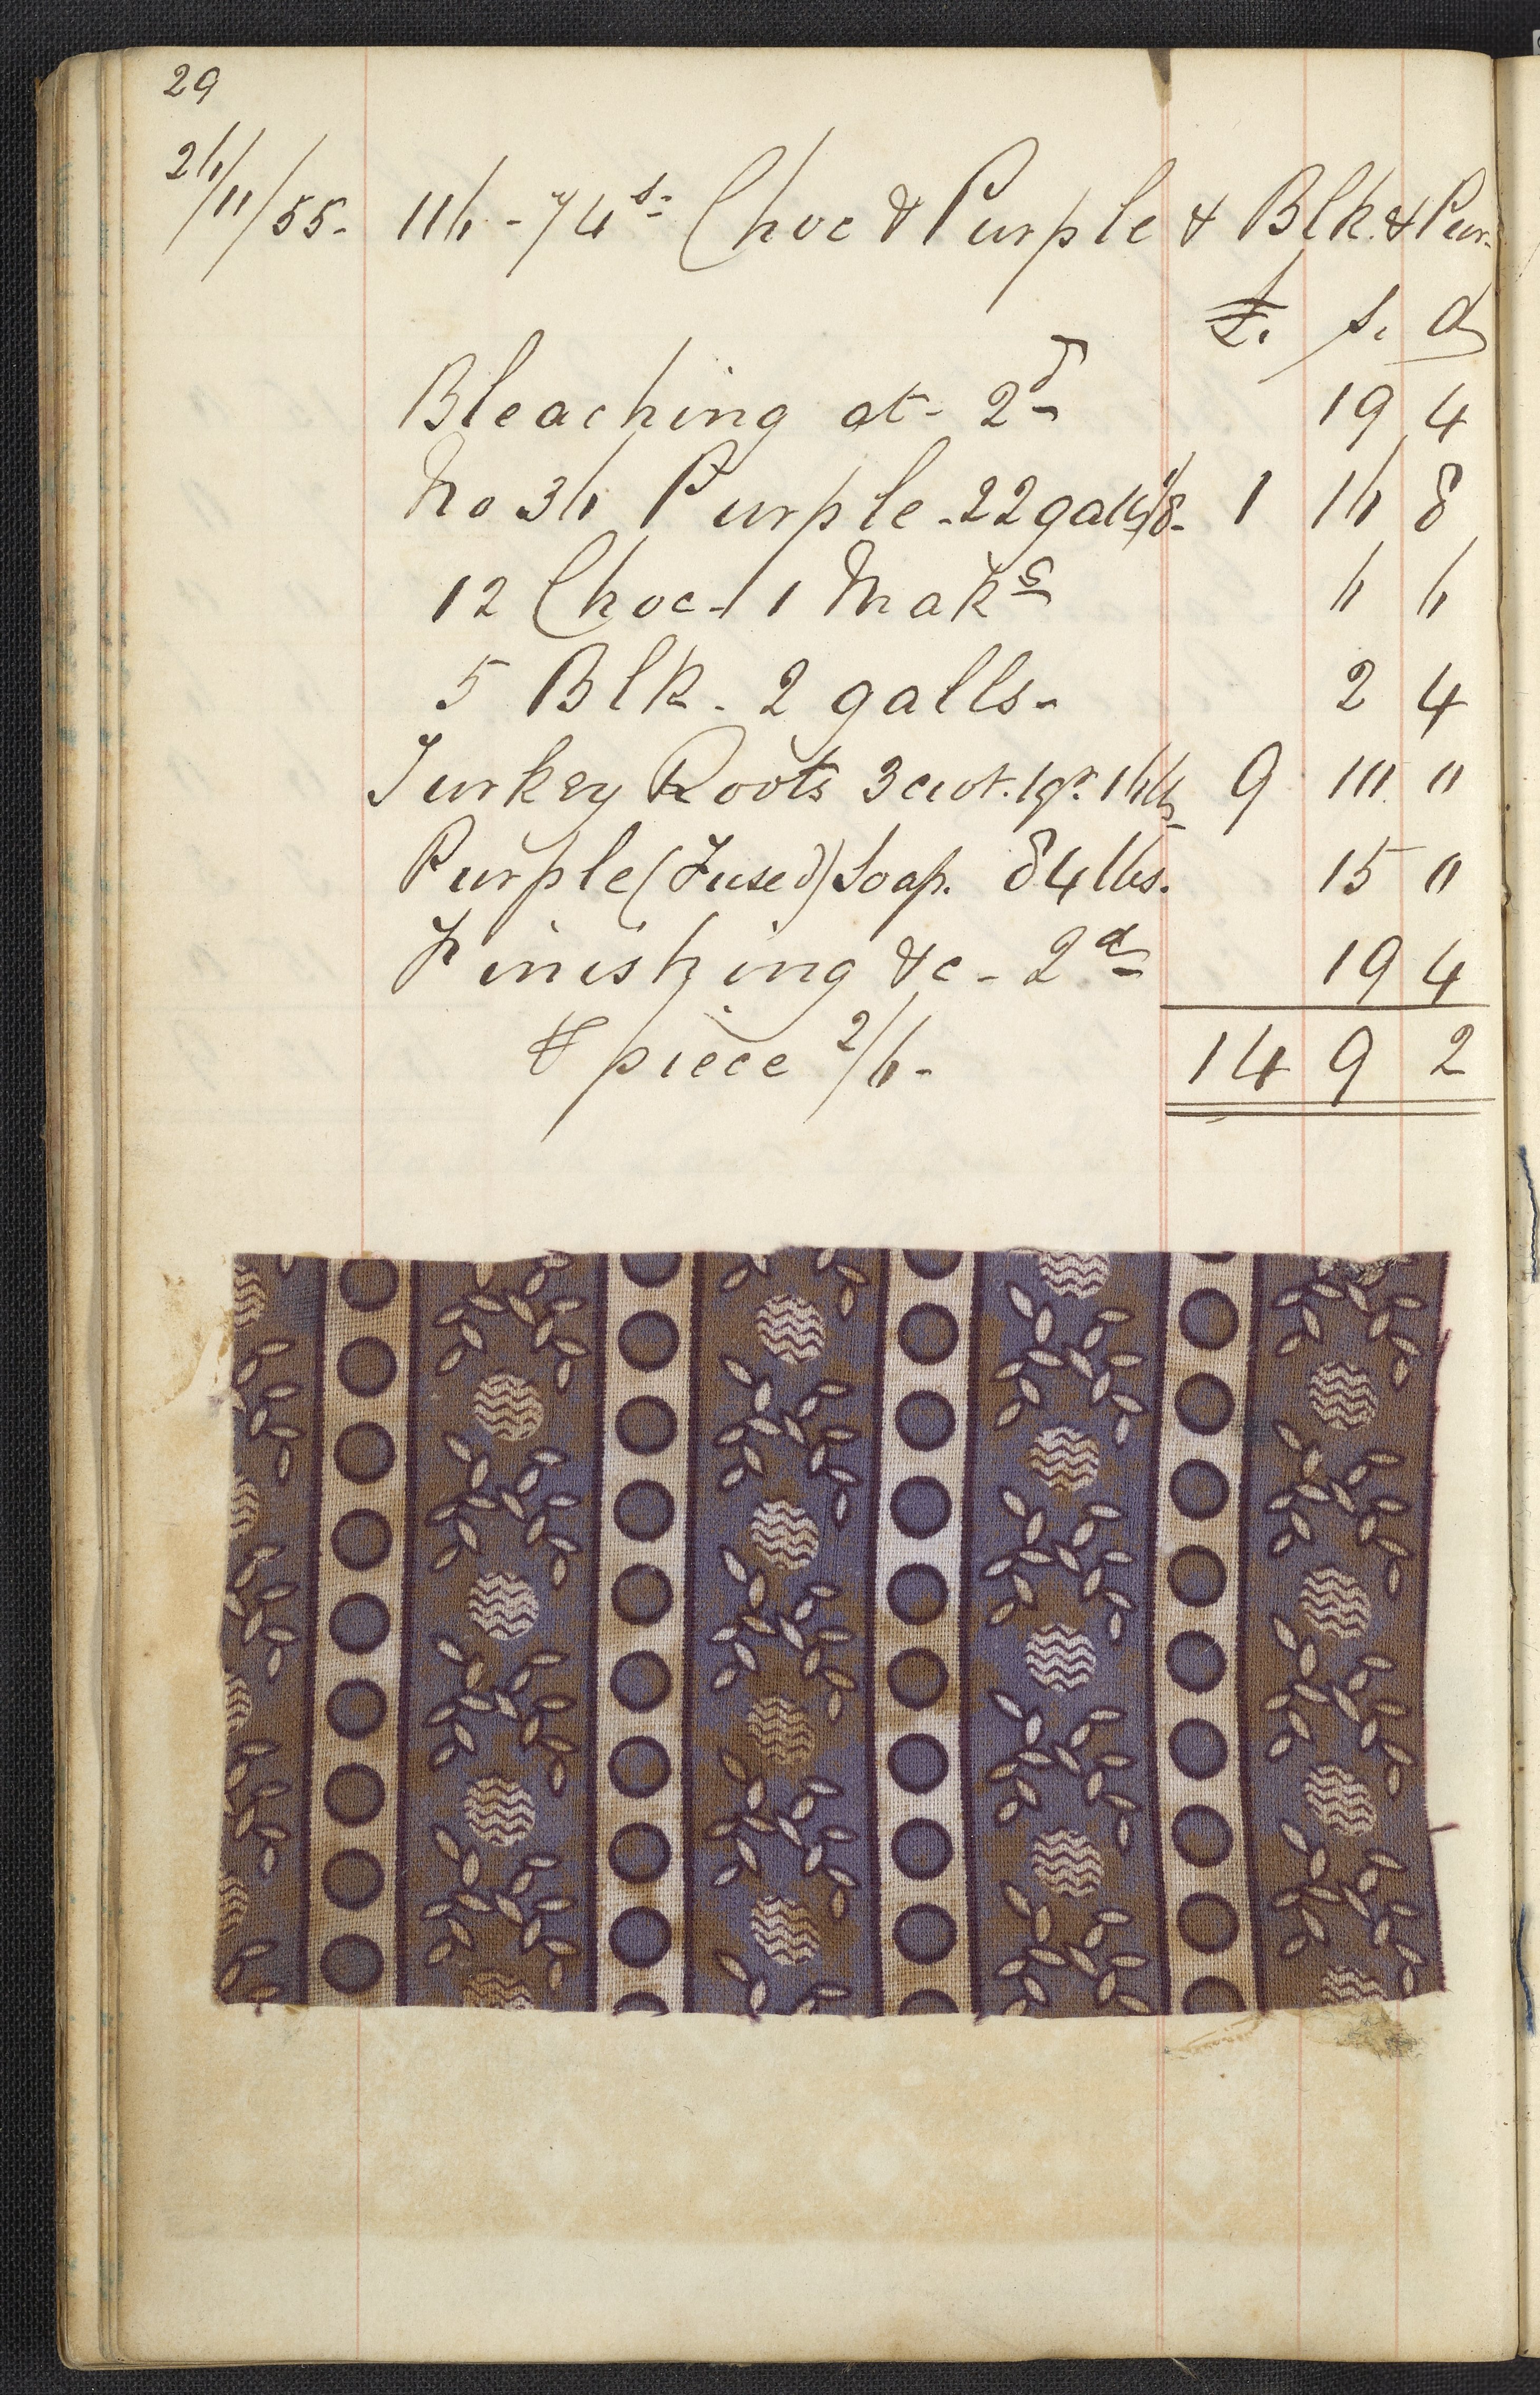 29
26/11/55. 116 - 74s. Choc & Purple & Blk. & Pur.
£. s. d
Bleaching at - 2d 19 4
No 36 Purple - 22 galls 1/8 - 1 16 8
12 Choc - 1 Mak^g 6 6
5 Blk. 2 galls. 2 4
Turkey Roots 3 cwt. 1 qr. 16 lbs 9 10 0
Purple (Fused) Soap. 84 lbs. 15 0
Finishing &c - 2d 19 4
⅌ piece 2/6 - 14 9 2